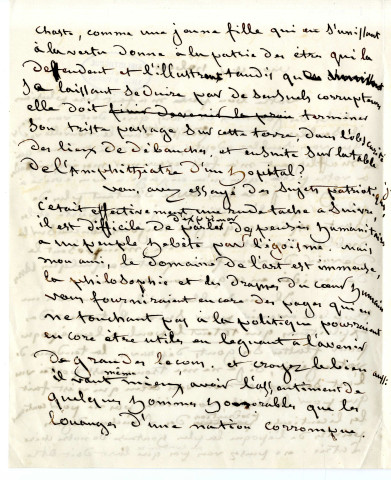 chaste, comme une jeune fille qui en s'unissant
à la vertu donne à la patrie des êtres qui la
deffendent et l'illustrent tandis que
se laissant séduire par de sensuels corrupteurs
elle doit finir devenir la proie terminer
son triste passage sur cette terre, dans l'obscurité
des lieux de débauches, et ensuite sur la table
de l'Amphithéatre d'un hopital?
vous avez essayé des sujets patriotiques
c'était effectivement une rude tache à suivre,
il est difficile de parler d'exprimer des pensées humanitaires
a un peuple habité par l'égoisme. mais
mon ami, le domaine de l'art est immense
la philosophie et des drames du cœur humain
vous fourniraient encore des pages qui en
ne touchant pas à la politique pourraient
encore être utiles en leguant à l'avenir
de grandes leçons. et croyez le bien aussi
il vaut même mieux, avoir l'assentiment de
quelques hommes honorables que les
louanges d'une nation corrompue.